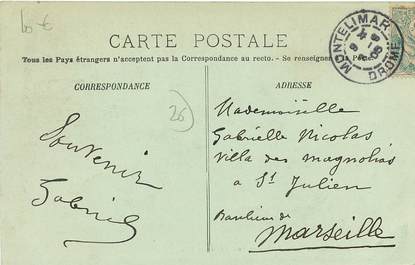 60 €
CARTE POSTALE
Tous les Pays étrangers n'acceptent pas la Correspondance au recto. - Se renseigner à la Poste
CORRESPONDANCE
ADRESSE
26
Souvenir
Gabriel
Mademoiselle
Gabrielle Nicolas
Villa des magnolias
à St Julien
Banlieue de
Marseille
MONTELIMAR
DROME